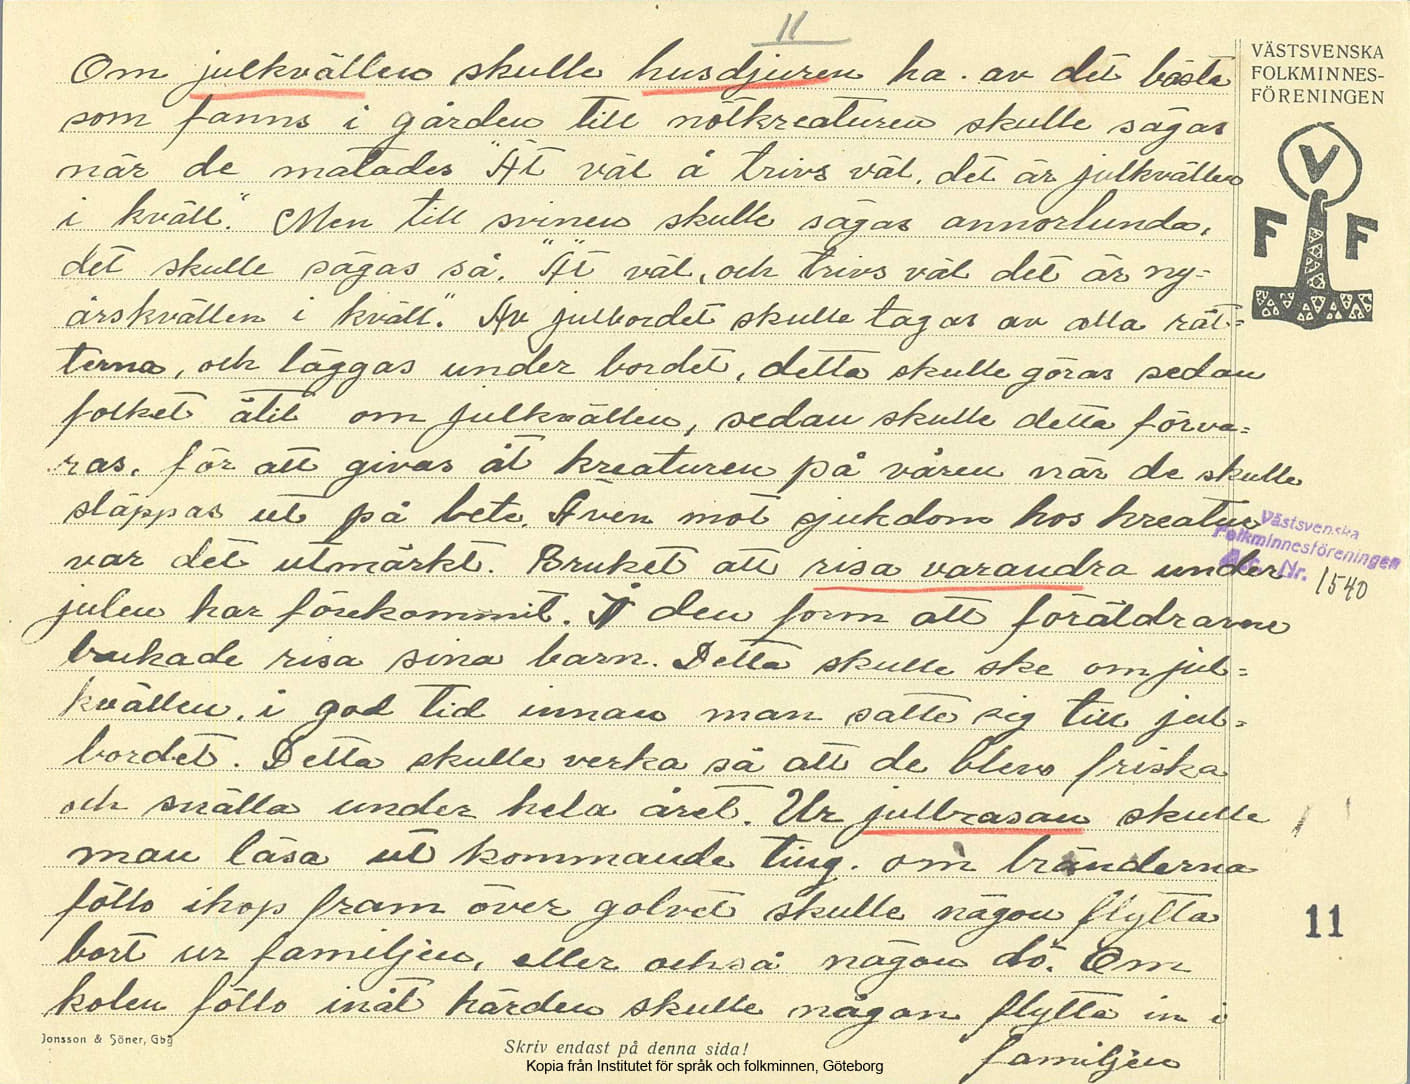 11
Om julkvällen skulle husdjuren ha. av det bästa
som fanns i gården till nötkreaturen skulle sägas
när de matades "Ät väl å trivs väl, det är julkvällen
i kväll". Men till svinen skulle sägas annorlunda,
det skulle sägas så, "Ät väl, och trivs väl det är ny=
årskvällen i kväll". Av julbordet skulle tagas av alla rät=
terna, och läggas under bordet, detta skulle göras sedan
folket ätit om julkvällen, sedan skulle detta förva=
ras, för att givas åt kreaturen på våren när de skulle
släppas ut på bete. Även mot sjukdom hos kreatur
var det utmärkt. Bruket att risa varandra under
julen har förekommit. I den form att föräldrarne
brukade risa sina barn. Detta skulle ske om jul=
kvällen, i god tid innan man satte sig till jul=
bordet. Detta skulle verka så att de blevo friska
och snälla under hela året. Ur julbrasan skulle
man läsa ut kommande ting. om bränderna
föllo ihop fram över golvet skulle någon flytta
bort ur familjen, eller också någon dö. Om
kolen föllo inåt härden skulle någon flytta in i
familjen
VÄSTSVENSKA
FOLKMINNES-
FÖRENINGEN
V
F F
Västsvenska
Folkminnesföreningen
Acc. Nr. 1540
11
Jonsson & Söner, Gbg
Skriv endast på denna sida!
Kopia från Institutet för språk och folkminnen, Göteborg